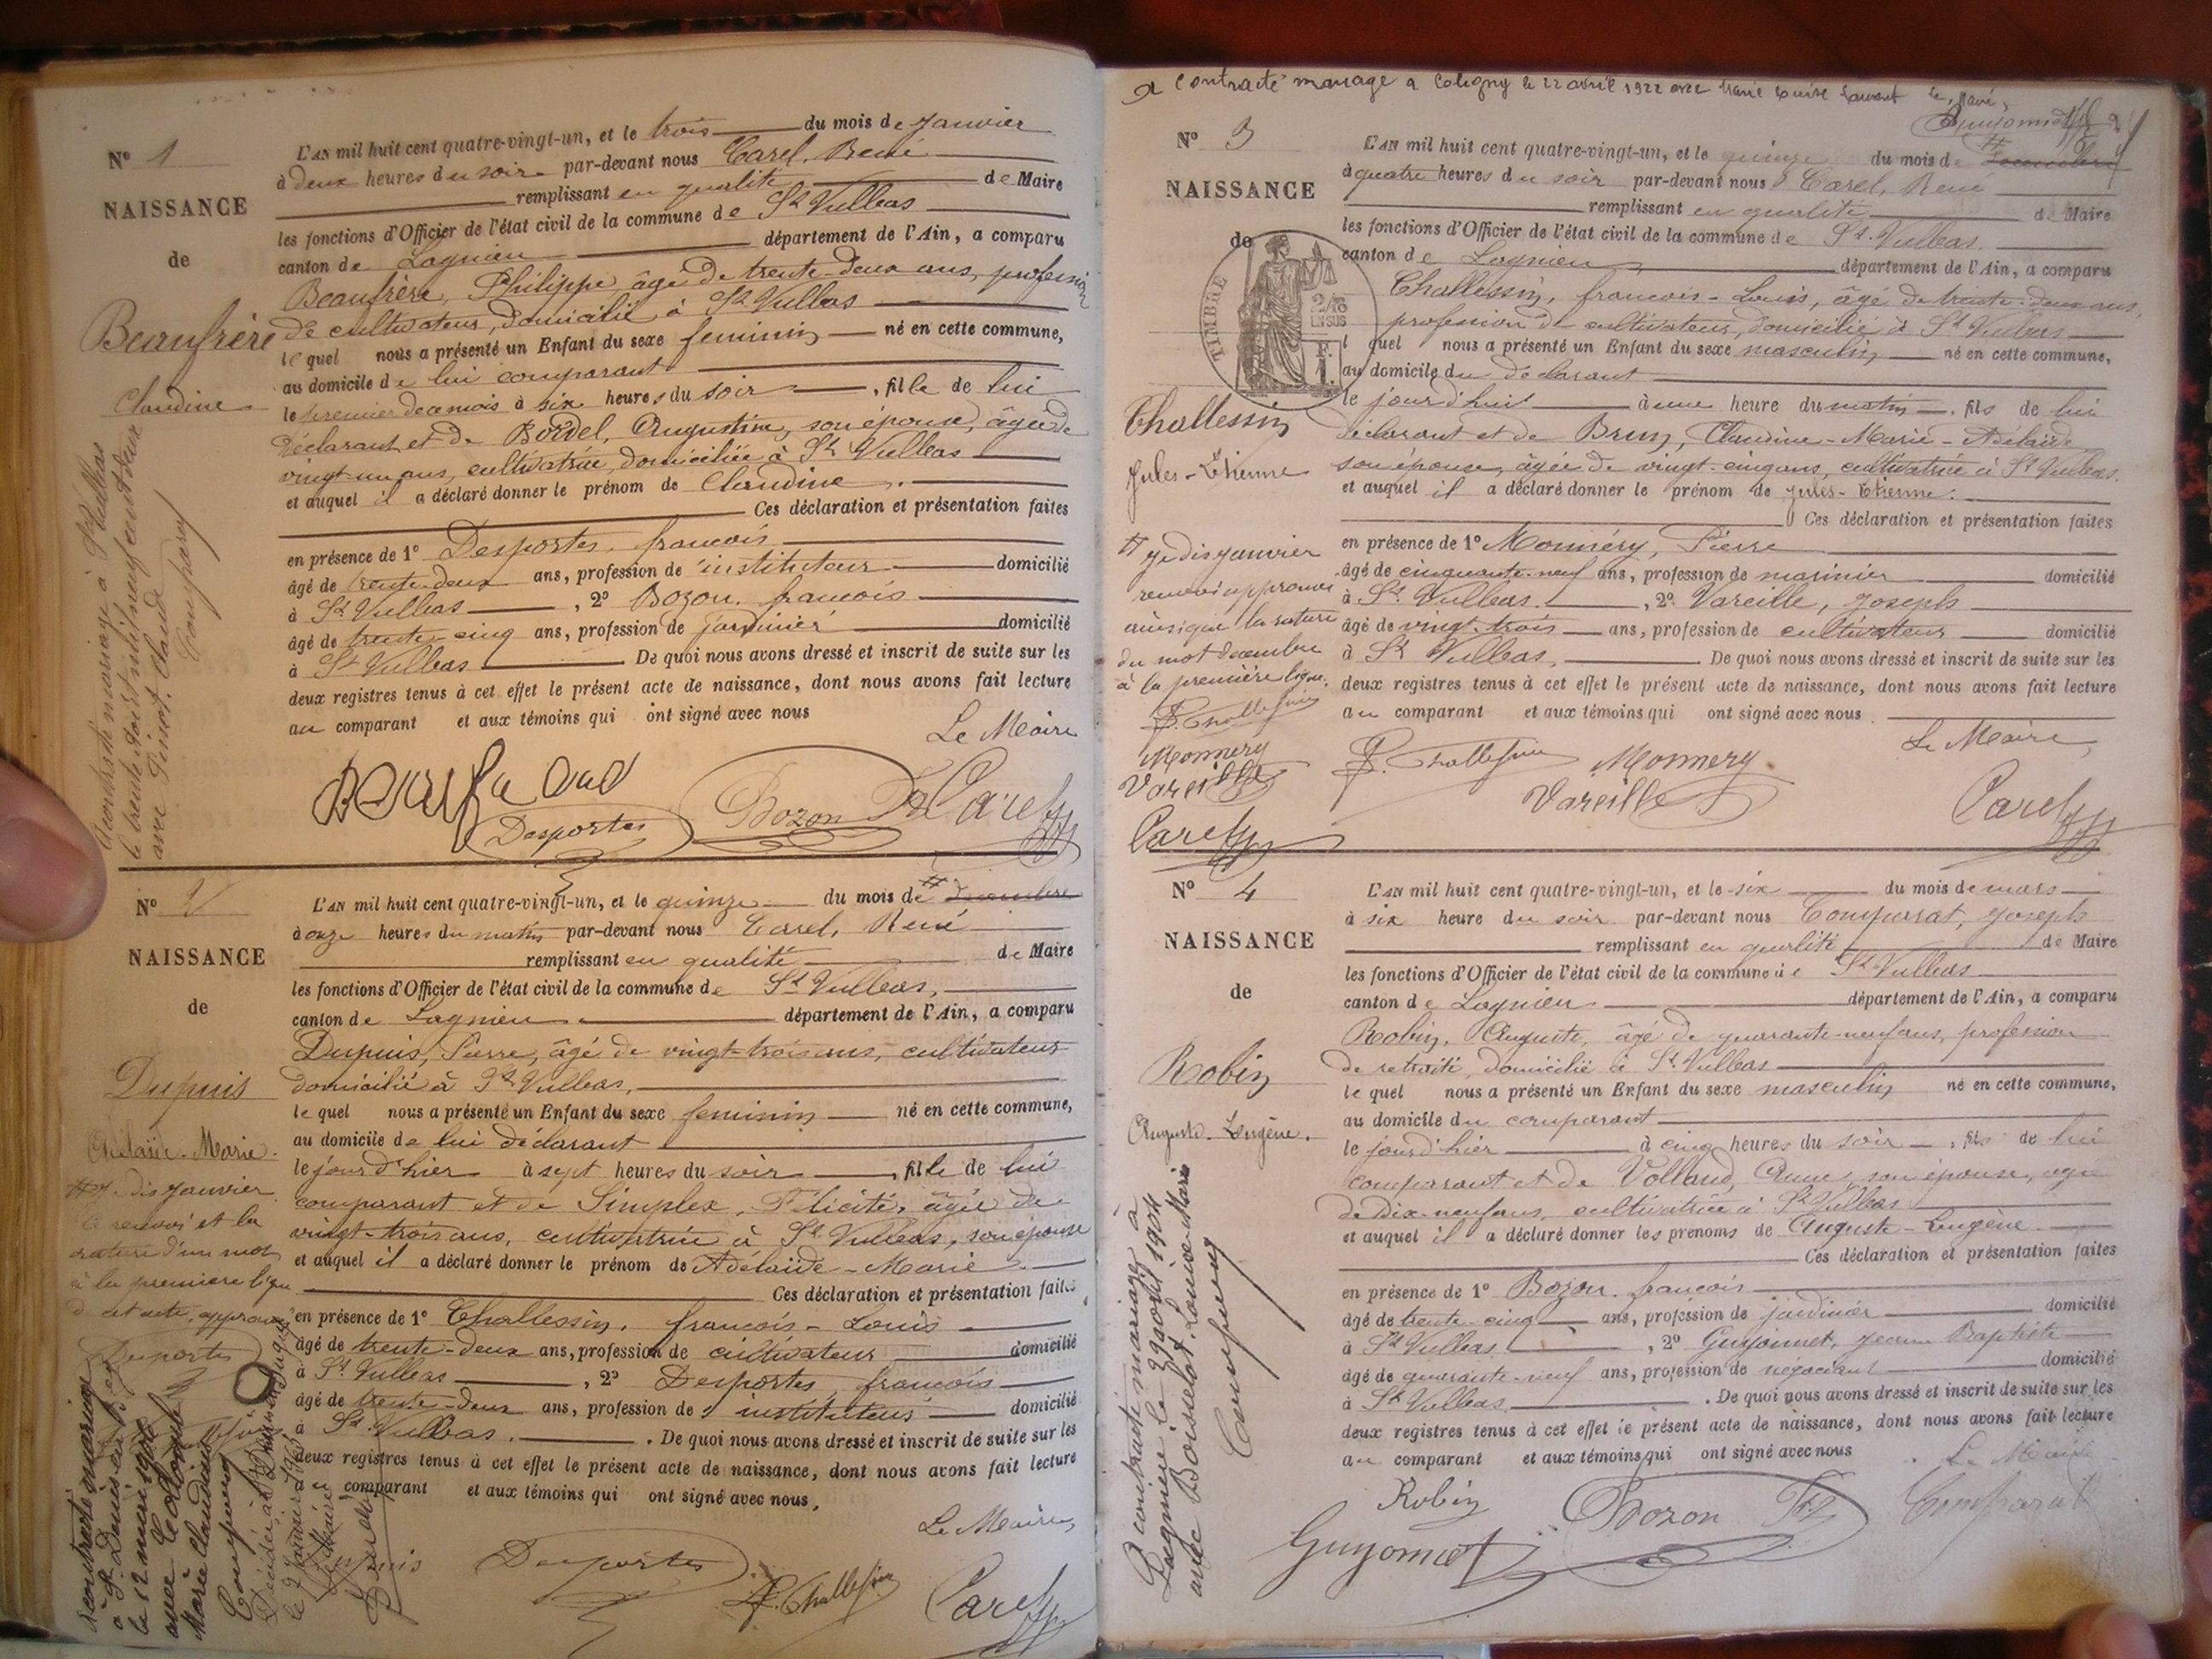 Nº 1
NAISSANCE
de
Beaufrère
Claudine
A contracté mariage à St Vulbas
le trente Août mil neuf cent deux
avec Pinot, Claude
Comparat
L'AN mil huit cent quatre-vingt-un, et le trois du mois de Janvier
à deux heures du soir par-devant nous Carel, René
remplissant en qualité de Maire
les fonctions d'Officier de l'état civil de la commune de St Vulbas
canton de Lagnieu département de l'Ain, a comparu
Beaufrère, Philippe, âgé de trente-deux ans, profession
de cultivateur, domicilié à St Vulbas
lequel nous a présenté un Enfant du sexe feminin né en cette commune,
au domicile de lui comparant
le premier de ce mois à six heures du soir, fille de lui
déclarant et de Bordel, Augustine, son épouse, âgée de
vingt-un ans, cultivatrice, domiciliée à St Vulbas
et auquel il a déclaré donner le prénom de Claudine.
Ces déclaration et présentation faites
en présence de 1º Desportes, françois
âgé de trente-deux ans, profession de instituteur domicilié
à St Vulbas, 2º Bozon, françois
âgé de trente-cinq ans, profession de jardinier domicilié
à St Vulbas De quoi nous avons dressé et inscrit de suite sur les
deux registres tenus à cet effet le présent acte de naissance, dont nous avons fait lecture
au comparant et aux témoins qui ont signé avec nous
Le Maire
Desportes Bozon Fs Carel
Nº 2
NAISSANCE
de
Dupuis
Adélaïde-Marie.
# Je dis Janvier
le renvoi et la
rature d'un mot
à la premiere ligne
de cet acte, approuvés
Desportes
A contracté mariage
à St Denis en B
le 12 mai 1906
avec
Marie Claudius
Décidée à
le 9 Janvier 1965
L'AN mil huit cent quatre-vingt-un, et le quinze du mois de # Decembre
à onze heures du matin par-devant nous Carel, René
remplissant en qualité de Maire
les fonctions d'Officier de l'état civil de la commune de St Vulbas,
canton de Lagnieu département de l'Ain, a comparu
Dupuis, Pierre, âgé de vingt-trois ans, cultivateur
domicilié à St Vulbas,
lequel nous a présenté un Enfant du sexe feminin né en cette commune,
au domicile de lui déclarant
le jour d'hier à sept heures du soir, fille de lui
comparant et de Simplex, Félicité, âgée de
vingt-trois ans, cultivatrice à St Vulbas, son épouse
et auquel il a déclaré donner le prénom de Adélaïde-Marie
Ces déclaration et présentation faites
en présence de 1º Challessin, françois-Louis
âgé de trente-deux ans, profession de cultivateur domicilié
à St Vulbas, 2º Desportes, françois
âgé de trente-deux ans, profession de instituteur domicilié
à St Vulbas. De quoi nous avons dressé et inscrit de suite sur les
deux registres tenus à cet effet le présent acte de naissance, dont nous avons fait lecture
au comparant et aux témoins qui ont signé avec nous,
Le Maire,
Dupuis Desportes Challessin Carel
A contracté mariage à Coligny le 22 avril 1922 avec Marie Louise Laurent Le Maire,
Guyonnet
Nº 3
NAISSANCE
de
TIMBRE
2/10
EN SUS
Challessin
Jules-Etienne
# Je dis Janvier
renvoi approuvé
ainsi que la rature
du mot decembre
à la première ligne.
Challessin
Monnery
Vareille
Carel
L'AN mil huit cent quatre-vingt-un, et le quinze du mois de # Decembre
à quatre heures du soir par-devant nous Carel, René
remplissant en qualité de Maire
les fonctions d'Officier de l'état civil de la commune de St. Vulbas
canton de Lagnieu département de l'Ain, a comparu
Challessin, francois-Louis, âgé de trente-deux ans,
profession de cultivateur, domicilié à St Vulbas
lequel nous a présenté un Enfant du sexe masculin né en cette commune,
au domicile du déclarant
le jour d'hui à une heure du matin, fils de lui
déclarant et de Brun, Claudine-Marie-Adélaïde
son épouse, âgée de vingt-cinq ans, cultivatrice à St Vulbas.
et auquel il a déclaré donner le prénom de Jules-Etienne.
Ces déclaration et présentation faites
en présence de 1º Monnéry, Pierre
âgé de cinquante-neuf ans, profession de marinier domicilié
à St. Vulbas, 2º Vareille, Joseph
âgé de vingt-trois ans, profession de cultivateur domicilié
à St Vulbas, De quoi nous avons dressé et inscrit de suite sur les
deux registres tenus à cet effet le présent acte de naissance, dont nous avons fait lecture
au comparant et aux témoins qui ont signé avec nous
Le Maire,
Challessin Monnery
Vareille Carel
Nº 4
NAISSANCE
de
Robin
Auguste-Eugène.
A contracté mariage à
Lagnieu le 23 avril 1904
avec Bousselot, Louise Marie
L'AN mil huit cent quatre-vingt-un, et le six du mois de mars
à six heure du soir par-devant nous Comparat, Joseph
remplissant en qualité de Maire
les fonctions d'Officier de l'état civil de la commune de St Vulbas
canton de Lagnieu département de l'Ain, a comparu
Robin, Auguste, âgé de quarante-neuf ans, profession
de retraité, domicilié à St Vulbas
lequel nous a présenté un Enfant du sexe masculin né en cette commune,
au domicile du comparant
le jour d'hier à cinq heures du soir, fils de lui
comparant et de Volland, Anne, son épouse, agée
de Dix-neuf ans, cultivatrice à St Vulbas
et auquel il a déclaré donner les prenoms de Auguste-Eugène.
Ces déclaration et présentation faites
en présence de 1º Bozon, francois
âgé de trente-cinq ans, profession de jardinier domicilié
à St Vulbas, 2º Guyonnet, Jean Baptiste
âgé de quarante-neuf ans, profession de négociant domicilié
à St Vulbas. De quoi nous avons dressé et inscrit de suite sur les
deux registres tenus à cet effet le présent acte de naissance, dont nous avons fait lecture
au comparant et aux témoins qui ont signé avec nous
Le Maire
Robin Bozon Fs Comparat
Guyonnet